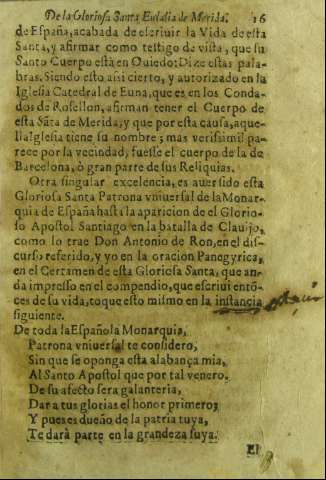 De la Gloriosa Santa Eulalia de Merida. 16
de España, acabada de escriuir la Vida de esta
Santa, y afirmar como testigo de vista, que su
Santo Cuerpo está en Ouiedo: Dize estas pala-
bras. Siendo esto assi cierto, y autorizado en la
Iglesia Catedral de Euna, que es en los Conda-
dos de Rosellon, afirman tener el Cuerpo de
esta Sāta de Merida, y que por esta causa, aque-
lla Iglesia tiene su nombre; mas verisimil pa-
rece por la vecindad, fuesse el cuerpo de la de
Barcelona, ò gran parte de sus Reliquias.
Otra singular excelencia, es auer sido esta
Gloriosa Santa Patrona vniuersal de la Monar-
quia de España hasta la aparicion de el Glorio-
so Apostol Santiago en la batalla de Clauijo,
como lo trae Don Antonio de Ron, en el dis-
curso referido, y yo en la oracion Panegyrica,
en el Certamen de esta Gloriosa Santa, que an-
da impresso en el compendio, que escriui entō-
ces de su vida, toque esto mismo en la instancia
siguiente.
De toda la Española Monarquia,
Patrona vniuersal te considero,
Sin que se oponga esta alabança mia,
Al Santo Apostol que por tal venero,
De su afecto sera galanteria,
Dar a tus glorias el honor primero;
Y pues es dueño de la patria tuya,
Te darà parte en la grandeza suya.
El